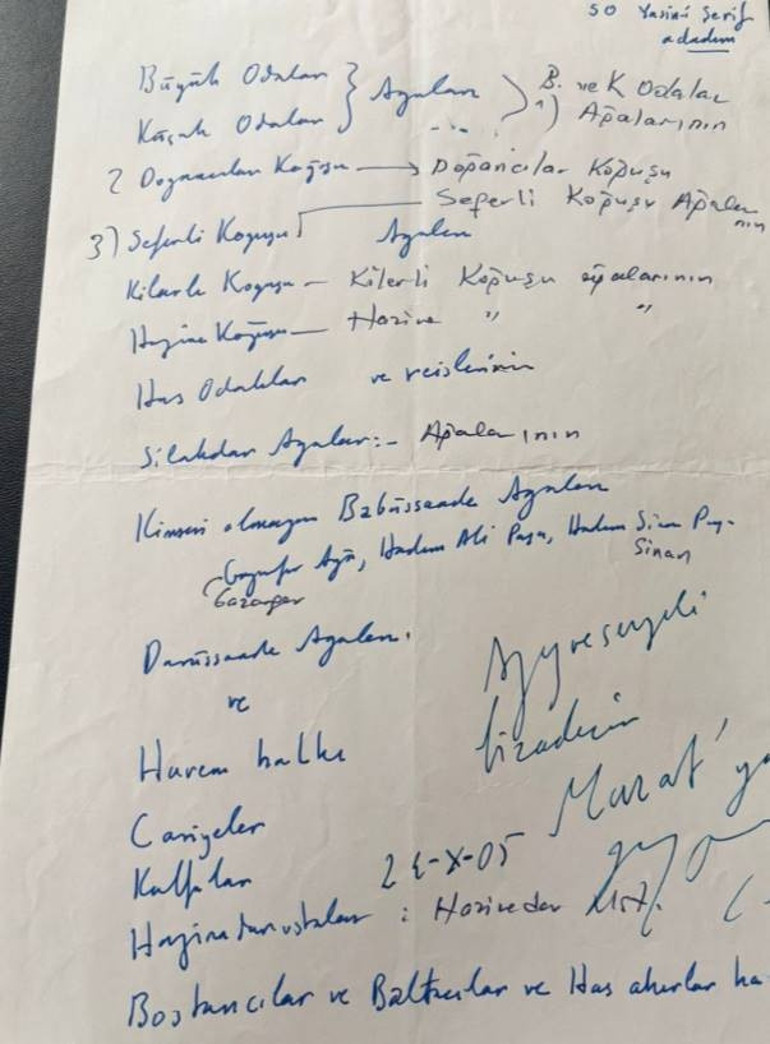 50 Yasini Şerif
adadım
Büyük Odaları } Ağaları ) B. ve K Odalar
Küçük Odaları 1) Ağalarının
2 Doğancılar Koğuşu → Doğancılar Koğuşu
Seferli Koğuşu Ağaları
nın
3) Seferli Koğuşu Ağaları
Kilerli Koğuşu – Kilerli Koğuşu ağalarının
Hazine Koğuşu — Hazine " "
Has Odalılar ve reislerinin
Silahdar Ağaları:- Ağalarının
Kimsesi olmayan Babüssaade Ağaları
Gazanfer Ağa, Hadım Ali Paşa, Hadım Sinan Paşa
Sinan
Gazanfer
Darüssaade Ağaları.
ve
Harem halkı
Cariyeler
Kalfaları
Murat'
2 -X-05
Hazinedar ustaları : Hazinedar Ust.
Bostancılar ve Baltacılar ve Has ahırlar ha